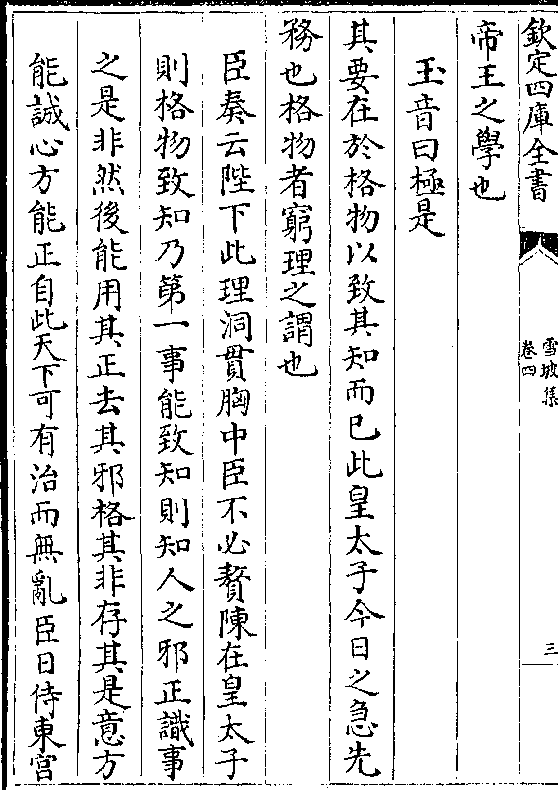 欽定四庫全書
雪坡集
卷四
三
帝王之學也
玉音曰極是
其要在於格物以致其知而已此皇太子今日之急先
務也格物者窮理之謂也
臣奏云陛下此理洞貫胸中臣不必贅陳在皇太子
則格物致知乃第一事能致知則知人之邪正識事
之是非然後能用其正去其邪格其非存其是意方
能誠心方能正自此天下可有治而無亂臣日侍東宫